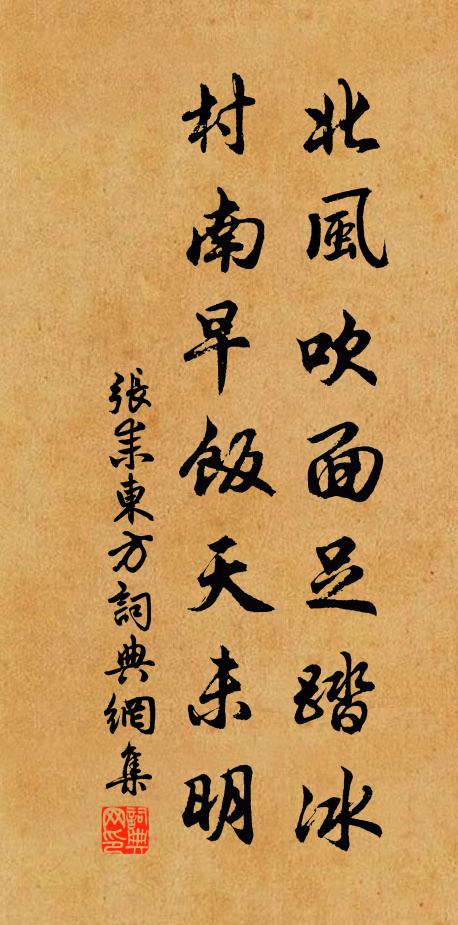 北風吹面足踏冰
村南早飯天未明
張耒東方詞典網集
詞典
网印